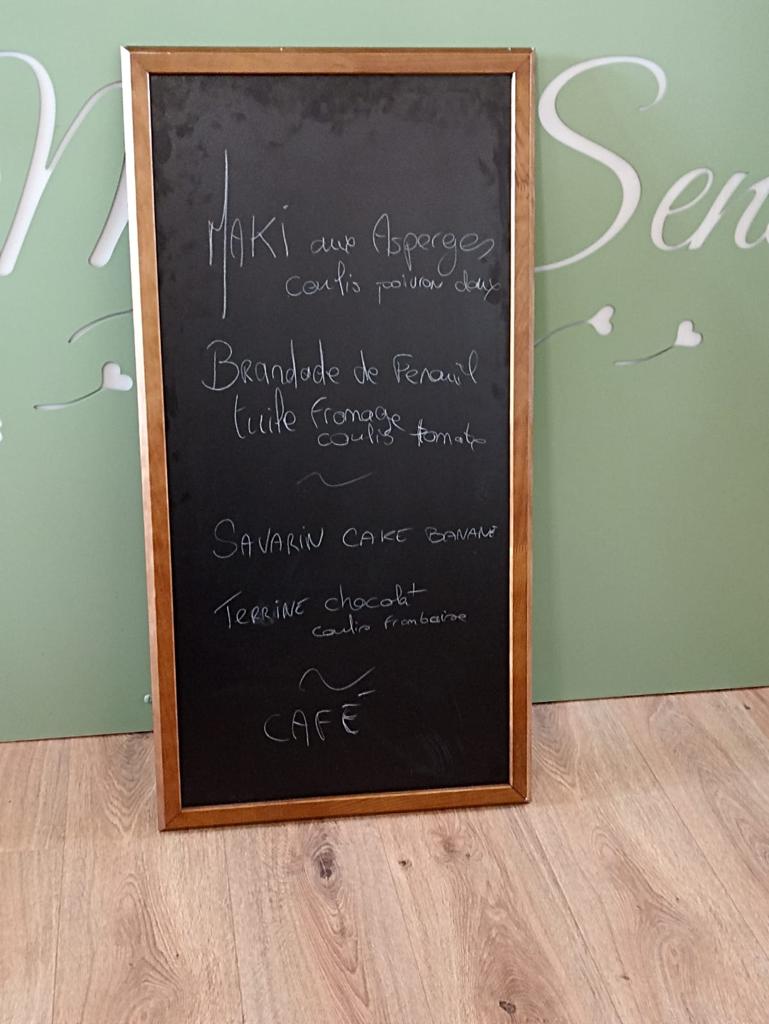 MAKi aux Asperges
coulis poivron doux
Brandade de Fenouil
tuile fromage
coulis tomate
~
SAVARIN CAKE BANANE
TERRINE chocolat
coulis framboise
~
CAFÉ
Sen